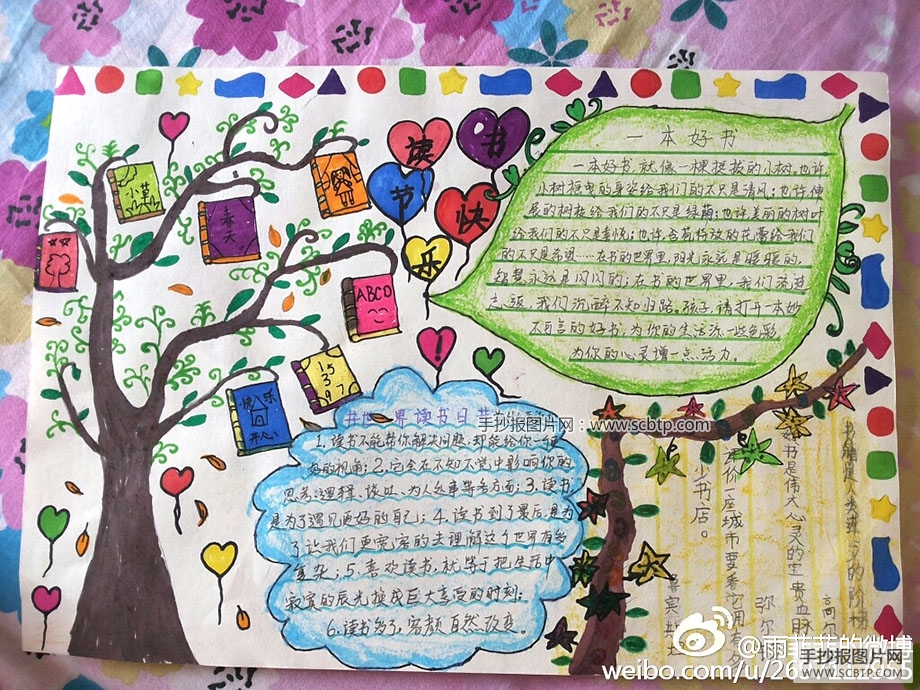 读书
节快
乐
!
小草
春天
ABCD
15
3
9 7
快乐
开心
一本好书
一本好书,就像一棵挺拔的小树,也许
小树摇曳的身姿给我们的不只是清风;也许伸
展的树枝给我们的不只是绿荫;也许美丽的树叶
给我们的不只是喜悦;也许含苞待放的花蕾给我们
的不只是希望……在书的世界里,阳光永远是暖暖的,
智慧永远是闪闪的;在书的世界里,我们流连
忘返,我们沉醉不知归路。孩子,请打开一本妙
不可言的好书,为你的生活添一些色彩,
为你的心灵增一点活力。
世界读书日
手抄报图片网:www.scbtp.com
1.读书不能帮你解决问题,却能给你一个更
好的视角;2.它会在不知不觉中影响你的
思考逻辑、谈吐、为人处事等各方面;3.读书
是为了遇见更好的自己;4.读书到了最后是为
了让我们更宽容的去理解这个世界有多
复杂;5.喜欢读书,就等于把生活中
寂寞的辰光换成巨大享受的时刻;
6.读书多了,容颜自然改变。
书籍是人类进步的阶梯
高尔
好书是伟大心灵的宝贵血脉
弥尔
评价一座城市要看它拥有多
少书店。
@雨菲菲的微博
weibo.com/u/26
手抄报图片网
WWW.SCBTP.COM